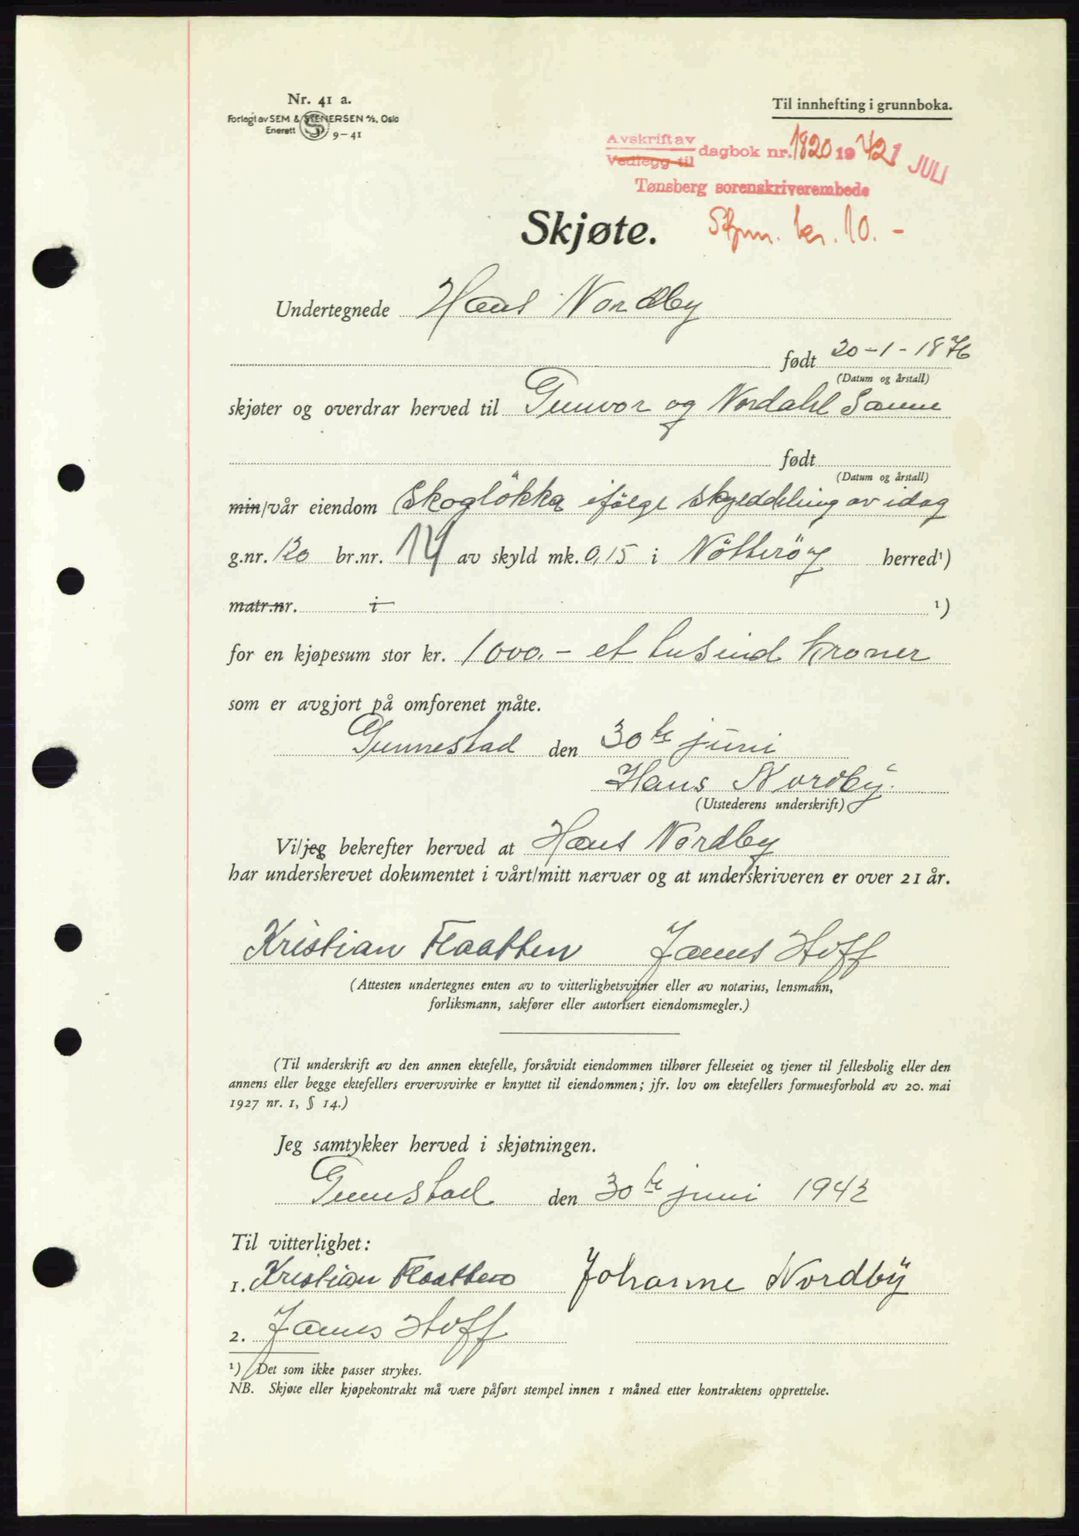 Nr. 41 a.
Forlagt av SEM & STENERSEN A/S, Oslo
Enerett 9-41
Til innhefting i grunnboka.
Avskrift av
Vedlegg til dagbok nr. 1820 1942 1 JULI
Tønsberg sorenskriverembede
Skjøte. Stpm. kr. 10.-
Undertegnede Hans Nordby
født 20-1-1876
(Datum og årstall)
skjøter og overdrar herved til Gunvor og Nordahl Sanne
født
(Datum og årstall)
min/vår eiendom Skogløkka ifølge skylddeling av idag
g.nr. 130 br.nr. 14 av skyld mk. 0,15 i Nøtterøy herred¹)
matr.nr. i ¹)
for en kjøpesum stor kr. 1000.- et tusind kroner
som er avgjort på omforenet måte.
Gunnestad den 30te juni
Hans Nordby.
(Utstederens underskrift)
Vi/jeg bekrefter herved at Hans Nordby
har underskrevet dokumentet i vårt/mitt nærvær og at underskriveren er over 21 år.
Kristian Flaatten James Hoff
(Attesten undertegnes enten av to vitterlighetsvitner eller av notarius, lensmann,
forliksmann, sakfører eller autorisert eiendomsmegler.)
(Til underskrift av den annen ektefelle, forsåvidt eiendommen tilhører felleseiet og tjener til fellesbolig eller den
annens eller begge ektefellers ervervsvirke er knyttet til eiendommen; jfr. lov om ektefellers formuesforhold av 20. mai
1927 nr. 1, § 14.)
Jeg samtykker herved i skjøtningen.
Gunnestad den 30te juni 1942
Til vitterlighet:
1. Kristian Flaatten Johanne Nordby
2. James Hoff
¹) Det som ikke passer strykes.
NB. Skjøte eller kjøpekontrakt må være påført stempel innen 1 måned etter kontraktens opprettelse.